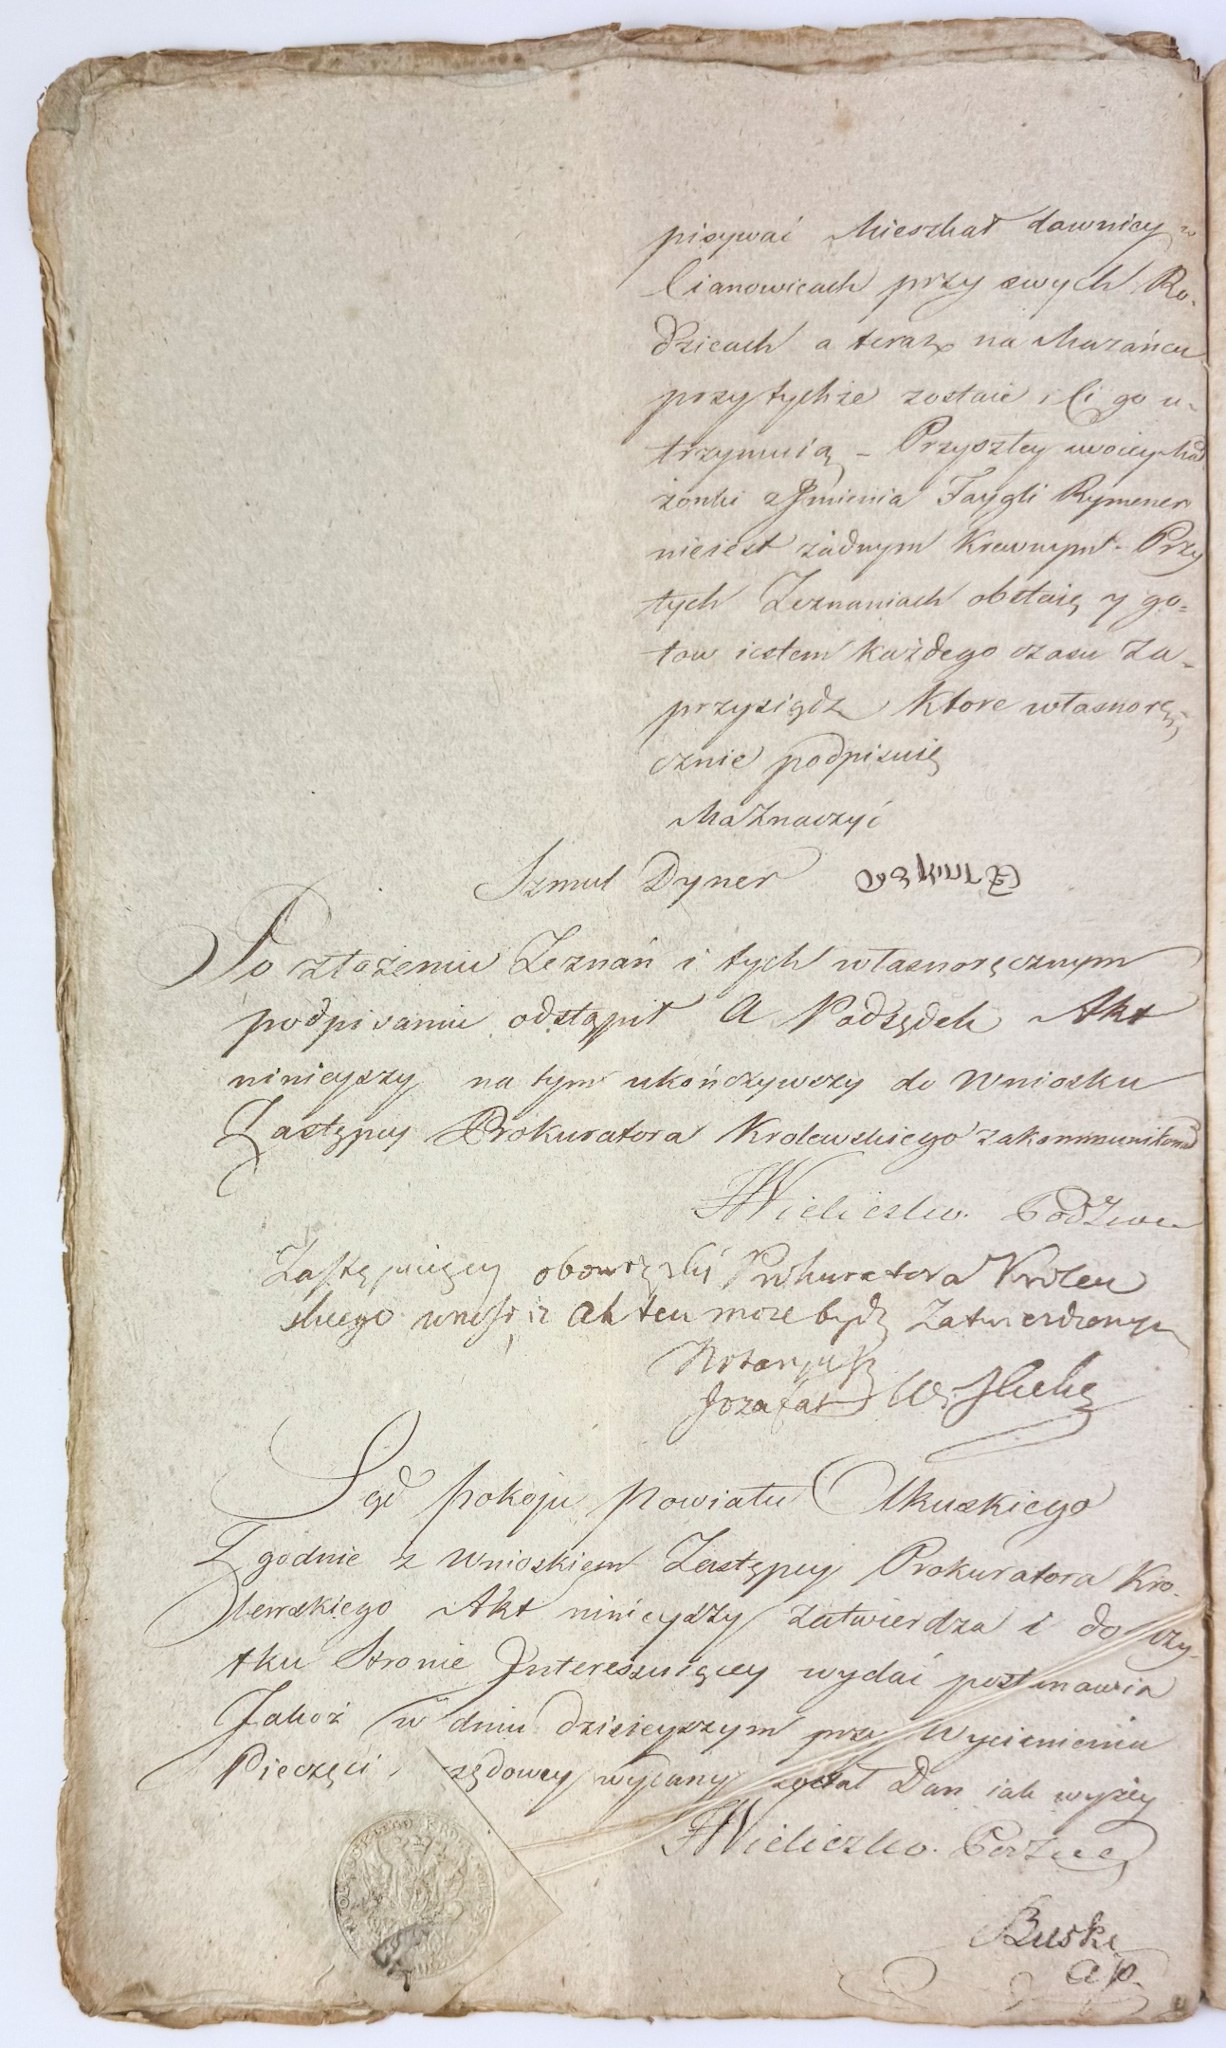 pisywać Mieszkał dawniey w
Cianowicach przy swych Ro-
dzicach a teraz na Murańcu
przytychże zostaie i Ci go u-
trzymuią – Przyszłey swoiey Mał
żonki z Jmienia Faygli Rymener
nieiest żadnym Krewnym. Przy
tych Zeznaniach obstaię y go=
tow iestem każdego czasu Za-
przysiądz Ktore własnorę
cznie podpisuię
Ma Znaczyć
Szmul Dyner
Po złożeniu Zeznań i tych własnoręcznym
podpisaniu odstąpił a Podsędek Akt
ninieyszy na tym ukończywszy do Wniosku
Zastępcy Prokuratora Krolewskiego zakommunikował
Wieliczko
Zastępuiący obowiązki Prokuratora Krolew
skiego wnosi iż Akt ten może bydź Zatwierdzonym
Notaryusz
Jozafat
Sąd Pokoju Powiatu Olkuskiego
Zgodnie z Wnioskiem Zastępcy Prokuratora Kro-
lewskiego Akt ninieyszy zatwierdza i do uży-
tku Stronie Interessuiącey wydać postanawia
Jakoż w dniu dzisieyszym przy Wycisnieniu
Pieczęci sądowey wydany został Dan iak wyżey
Wieliczko